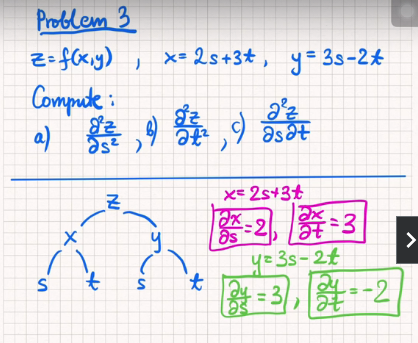 Problem 3
z=f(x,y) , x=2s+3t, y=3s-2t
Compute:
a) ∂²z/∂s² , b) ∂²z/∂t² , c) ∂²z/∂s∂t
z
x y
s t s t
x=2s+3t
∂x/∂s=2, ∂x/∂t=3
y=3s-2t
∂y/∂s=3, ∂y/∂t=-2